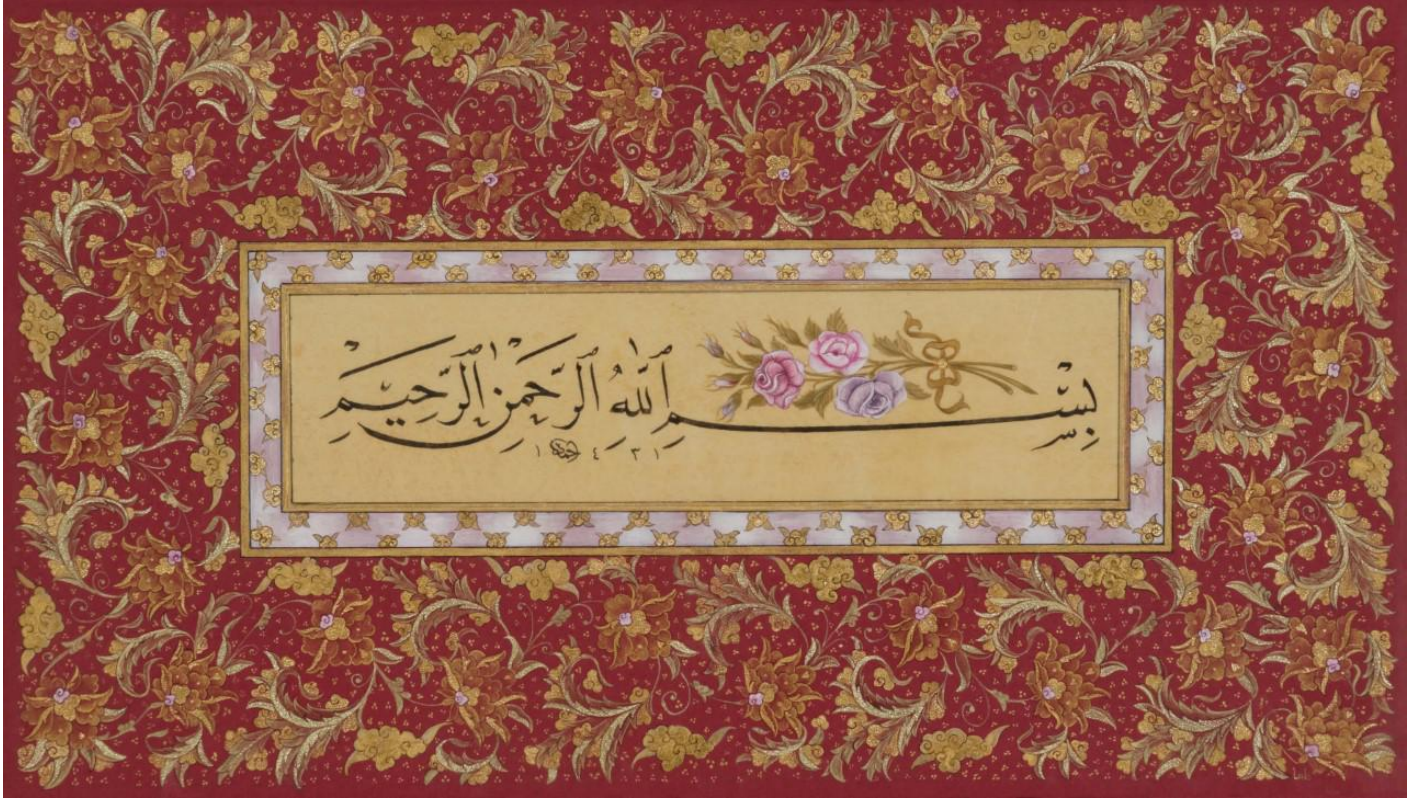 بِسْمِ ٱللّٰهِ ٱلرَّحْمٰنِ ٱلرَّحِيمِ
١٤٣١